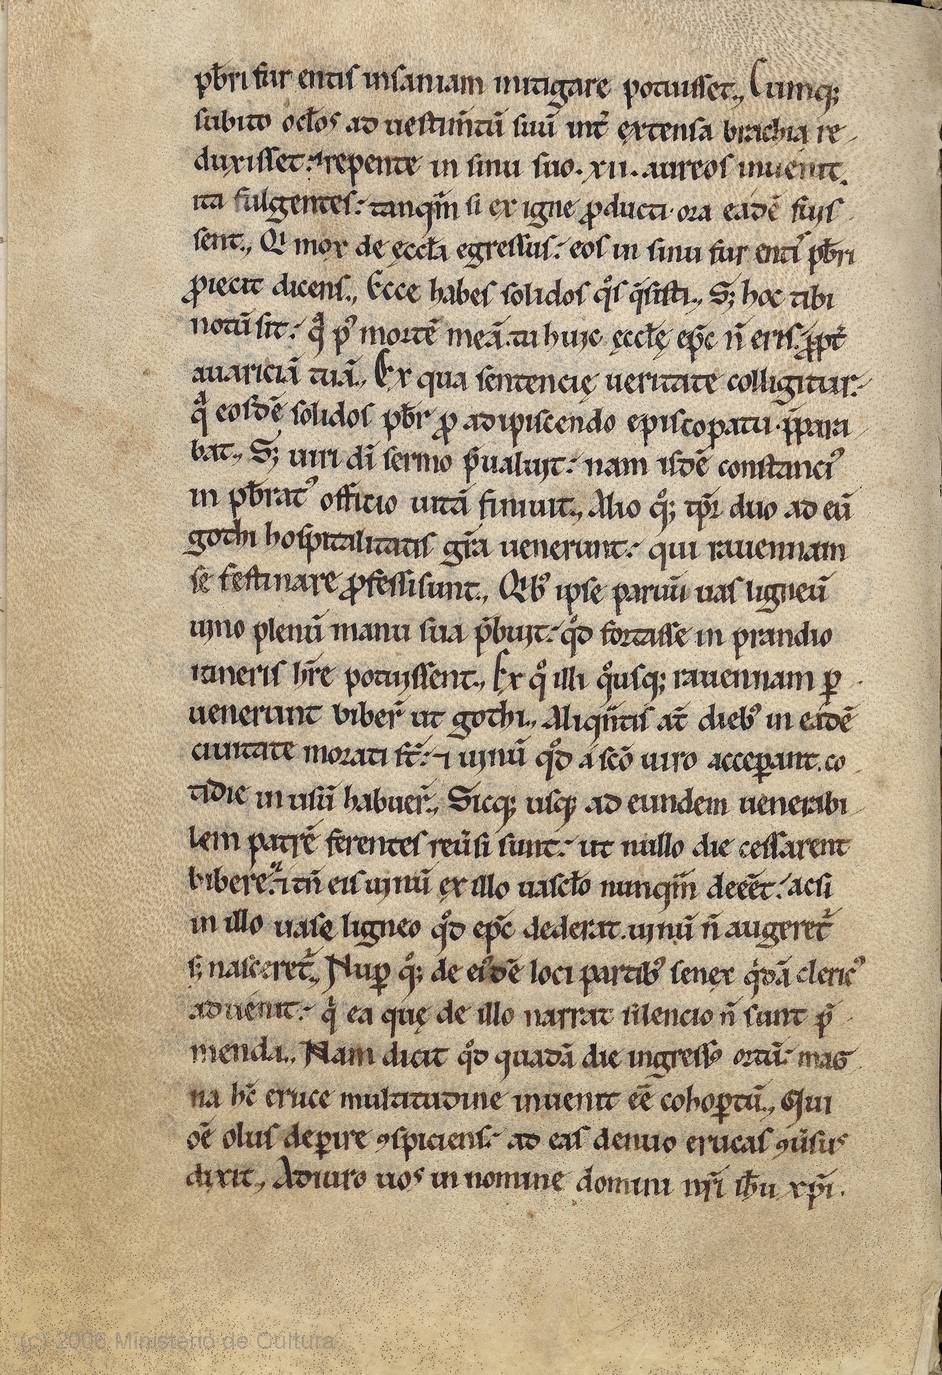 pb̄ri fur entis insaniam mitigare potuisset., Cumq;
subito oc̄los ad uestim̄tū suū int̄ extensa brachia re
duxisset: repente in sinu suo. xii. aureos inuenit.
ita fulgentes: tanqm̄ si ex igne ꝓducti ora eadē fuis
sent., Q mox de ęccƚa egressus: eos in sinu fur entis pb̄ri
ꝓiecit dicens., Ecce habes solidos qͦs q̄sisti., Sꝫ hoc tibi
notū sit: qᷓ pꝰ mortē meā. tu huic ęccƚę ep̄c n̄ eris. ꝓpt̄
auariciā tuā., Ex qua sentencię ueritate colligitur:
qᷓ eosdē solidos pb̄r ꝓ adipiscendo episcopatu p̄para
bat., Sꝫ uiri dī sermo p̄ualuit: nam isdē constanciꝰ
in pb̄ratꝰ officio uitā finiuit., Alio qͦꝫ tp̄r duo ad eū
gothi hospitalitatis gr̄a uenerunt: qui rauennam
se festinare ꝓfessi sunt., Qbꝰ ipse paruū uas ligneū
uino plenū manu sua p̄buit: qͦd fortasse in prandio
itineris hr̄e potuissent., Ex qͦ illi qͦusqꝫ rauennam ꝑ
uenerunt biber̄ ut gothi., Aliqn̄tis at̄ diebꝰ in eadē
ciuitate morati st̄: ⁊ uinū qͦd a sc̄o uiro acceꝑant. co
tidie in usū habuer̄., Sicqꝫ usqꝫ ad eundem uenerabi
lem patrē ferentes reūsi sunt: ut nullo die cessarent
bibere: ⁊ tn̄ eis uinū ex illo uascƚo nunqm̄ deēet: acsi
in illo uase ligneo qͦd ep̄c dederat. uinū n̄ augeret̄
sꝫ nasceret̄., Nuꝑ qͦꝫ de eisdē loci partibꝰ senex qͥdā clericꝰ
aduenit: qͥ ea quę de illo narrat silencio n̄ sunt p̄
menda., Nam dicit qͦd quadā die ingressꝰ ortū: mag
na hc̄ eruce multitudine inuenit eē cohoꝑtū., Qui
oē olus deꝑire ꝯspiciens: ad eas denuo erucas ꝯūsus
dixit., Adiuro uos in nomine domini nr̄i ih̄u xp̄i.
(c) 2006 Ministerio de Cultura